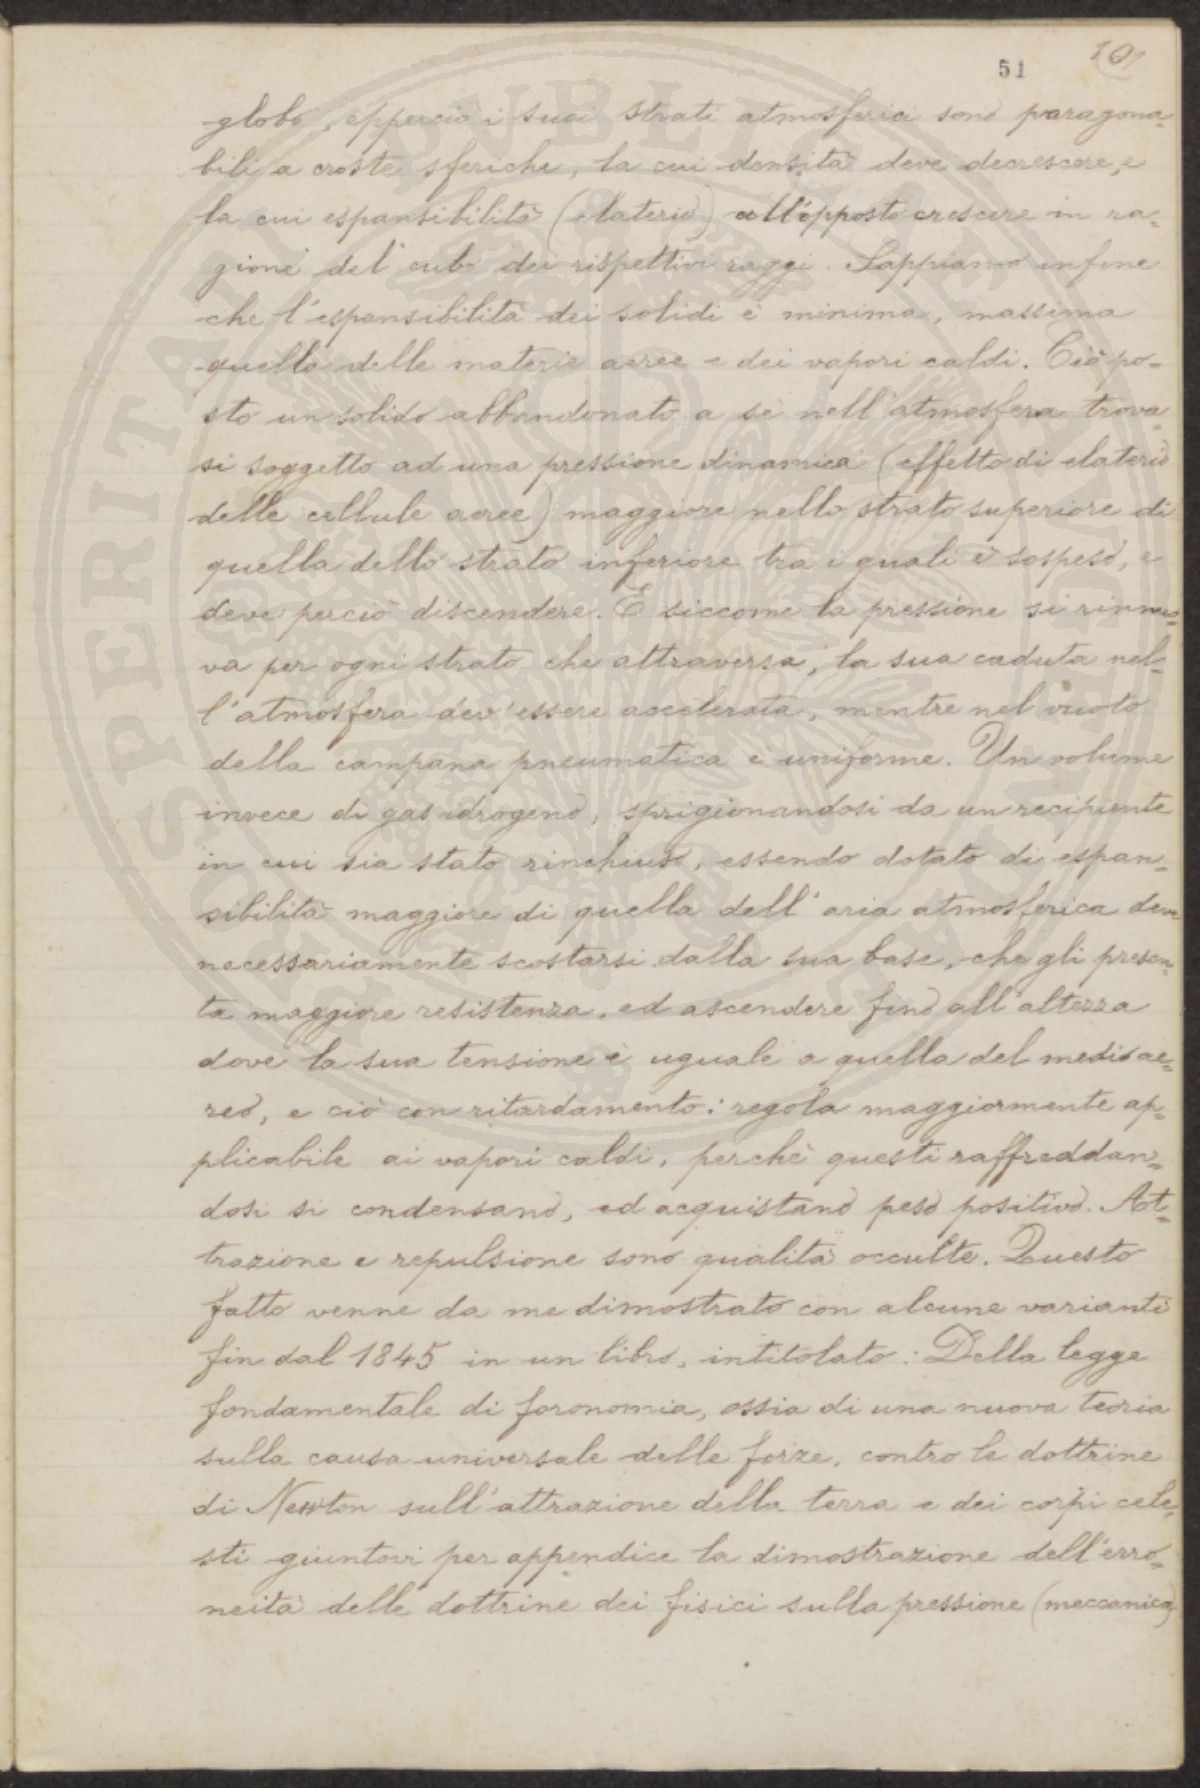 51
101
globo, epperciò i suoi strati atmosferici sono paragona-
bili a croste sferiche, la cui densità deve decrescere, e
la cui espansibilità (elaterio) all'opposto crescere in ra-
gione del cubo dei rispettivi raggi. Sappiamo infine
che l'espansibilità dei solidi è minima, massima
quella delle materie aeree e dei vapori caldi. Ciò po-
sto un solido abbandonato a sè nell'atmosfera trova-
si soggetto ad una pressione dinamica (effetto di elaterio
delle cellule aeree) maggiore nello strato superiore di
quella dello strato inferiore tra i quali è sospeso, e
deve perciò discendere. E siccome la pressione si rinno-
va per ogni strato che attraversa, la sua caduta nel-
l'atmosfera dev'essere accelerata, mentre nel vuoto
della campana pneumatica è uniforme. Un volume
invece di gas idrogeno, sprigionandosi da un recipiente
in cui sia stato rinchiuso, essendo dotato di espan-
sibilità maggiore di quella dell'aria atmosferica deve
necessariamente scostarsi dalla sua base, che gli presen-
ta maggiore resistenza, ed ascendere fino all'altezza
dove la sua tensione è uguale a quella del medio ae-
reo, e ciò con ritardamento: regola maggiormente ap-
plicabile ai vapori caldi, perchè questi raffreddan-
dosi si condensano, ed acquistano peso positivo. At-
trazione e repulsione sono qualità occulte. Questo
fatto venne da me dimostrato con alcune varianti
fin dal 1845 in un libro, intitolato: Della legge
fondamentale di foronomia, ossia di una nuova teoria
sulla causa universale delle forze, contro le dottrine
di Newton sull'attrazione della terra e dei corpi cele-
sti giuntovi per appendice la dimostrazione dell'erro-
neità delle dottrine dei fisici sulla pressione (meccanica)
PROSPERITATI PUBLICAE AUGENDAE